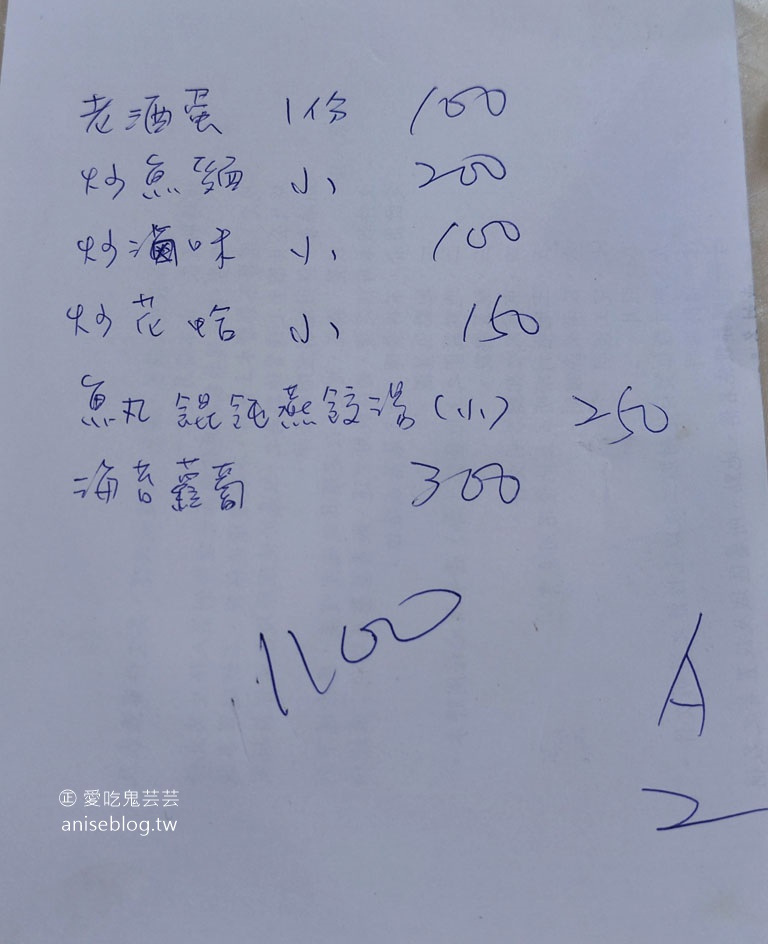 老酒蛋 1份 100
炒魚麵 小 200
炒滷味 小 100
炒花蛤 小 150
魚丸餛飩燕餃湯(小) 250
海苔蘿蔔 300
1100
A
2
㊣ 愛吃鬼芸芸
aniseblog.tw